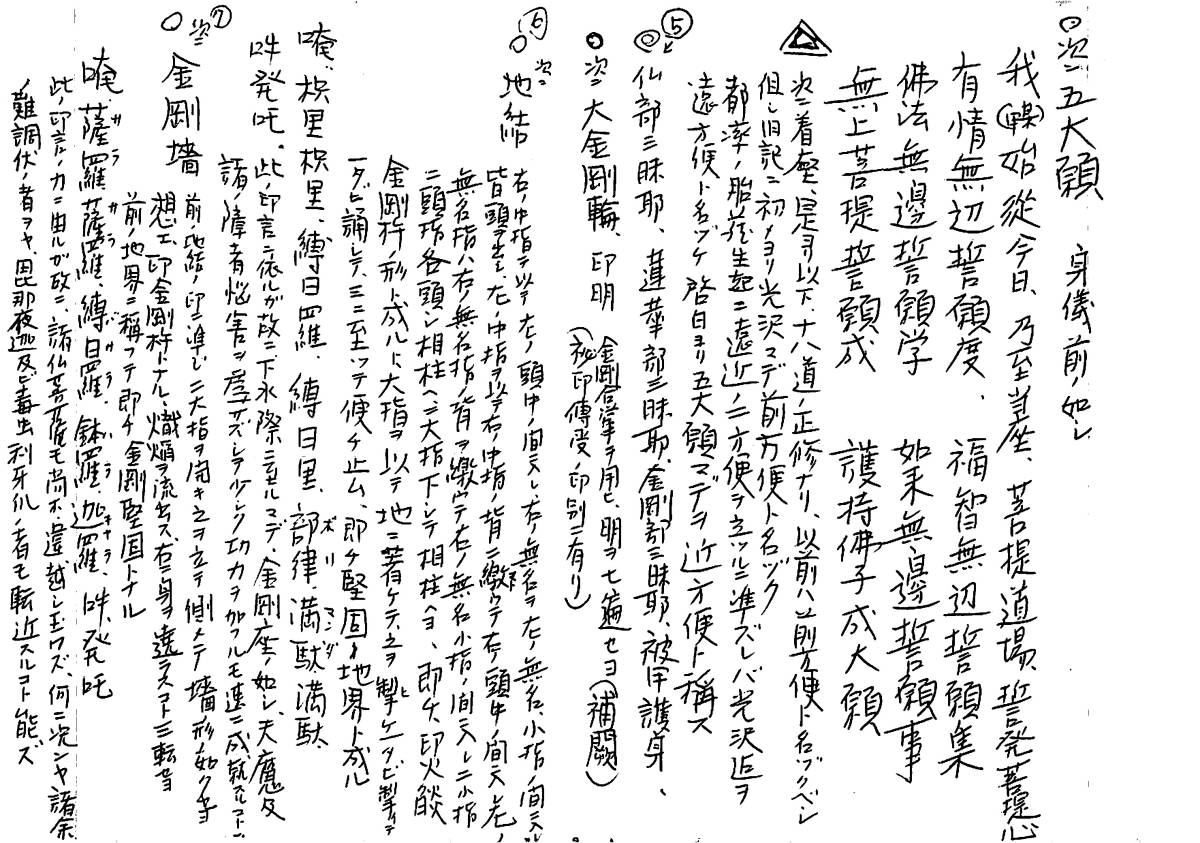 ○次ニ五大願 身儀前ノ如シ
我(某)始從今日、乃至当座、菩提道場、誓発菩提心
有情無辺誓願度、 福智無辺誓願集
佛法無邊誓願学 如来無邊誓願事
無上菩提誓願成 護持佛子成大願
次ニ着座、是ヨリ以下、十八道ノ正修ナリ、以前ハ前方便ト名ヅクベシ
但シ旧記ニ初メヨリ光沢マデ前方便ト名ヅク
都率ノ胎蔵生起ニ遠近ノ二方便ヲ立ツルニ準ズレバ光沢迄ヲ
遠方便ト名ヅケ 啓白ヨリ五大願マデヲ近方便ト称ス
⑤
◎仏部三昧耶、蓮華部三昧耶、金剛部三昧耶、被甲護身、
○次ニ大金剛輪、印明 金剛合掌ヲ用ヒ、明ヲ七遍セヨ(補闕)
(秘印傳受ノ印別ニ有リ)
⑥
○次ニ地結 右ノ中指ヲ以テ左ノ頭中ノ間ニ入レ、右ノ無名ヲ左ノ無名、小指ノ間ニ入レ
皆頭ヲ出シ、左ノ中指ヲ以テ右ノ中指ノ背ニ繳ウテ右ノ頭中ノ間ニ入レ、左ノ
無名指ハ右ノ無名指ノ背ヲ繳ウテ右ノ無名小指ノ間ニ入レ二小指
二頭指各頭シ相柱ヘ二大指下シテ相柱ヘヨ、即チ、印火燄
金剛杵ノ形ト成ルト、大指ヲ以テ地ニ著ケテ、之ヲ掣ケ一タビ掣イテ
一タビ誦シテ、三ニ至ッテ便チ止ム、即チ堅固ノ地界ト成ル
唵、枳里枳里、縛日羅、縛日里、部律、満駄満駄、
ボリ マンダ
吽発吒。此ノ印言ニ依ルガ故ニ下水際ニ至ルマデ、金剛座ノ如シ、天魔及
諸ノ障者悩害ヲ為サズシテ少シク功力ヲ加フルモ速ニ成就スルコトヲ
⑦
○次ニ金剛墻 前ノ地結ノ印ニ準ジ二大指ヲ開キ之ヲ立テ側メテ墻形ノ如クセヨ
想エ、印金剛杵トナル、熾焔ヲ流出ス、右ニ身ヲ遶ラスコト三転セヨ
前ノ地界ニ稱フテ即チ金剛堅固トナル
唵、薩羅薩羅、縛日羅、鉢羅、迦羅、吽、発吒
サラ サラ バザラ ハラ キャラ
此ノ印言ノ力ニ由ルガ故ニ、諸仏菩薩モ尚ホ違越シ玉ワズ、何ニ況ンヤ諸余
ノ難調伏ノ者ヲヤ、毘那夜迦及ビ毒虫利牙爪ノ者モ転近スルコト能ズ